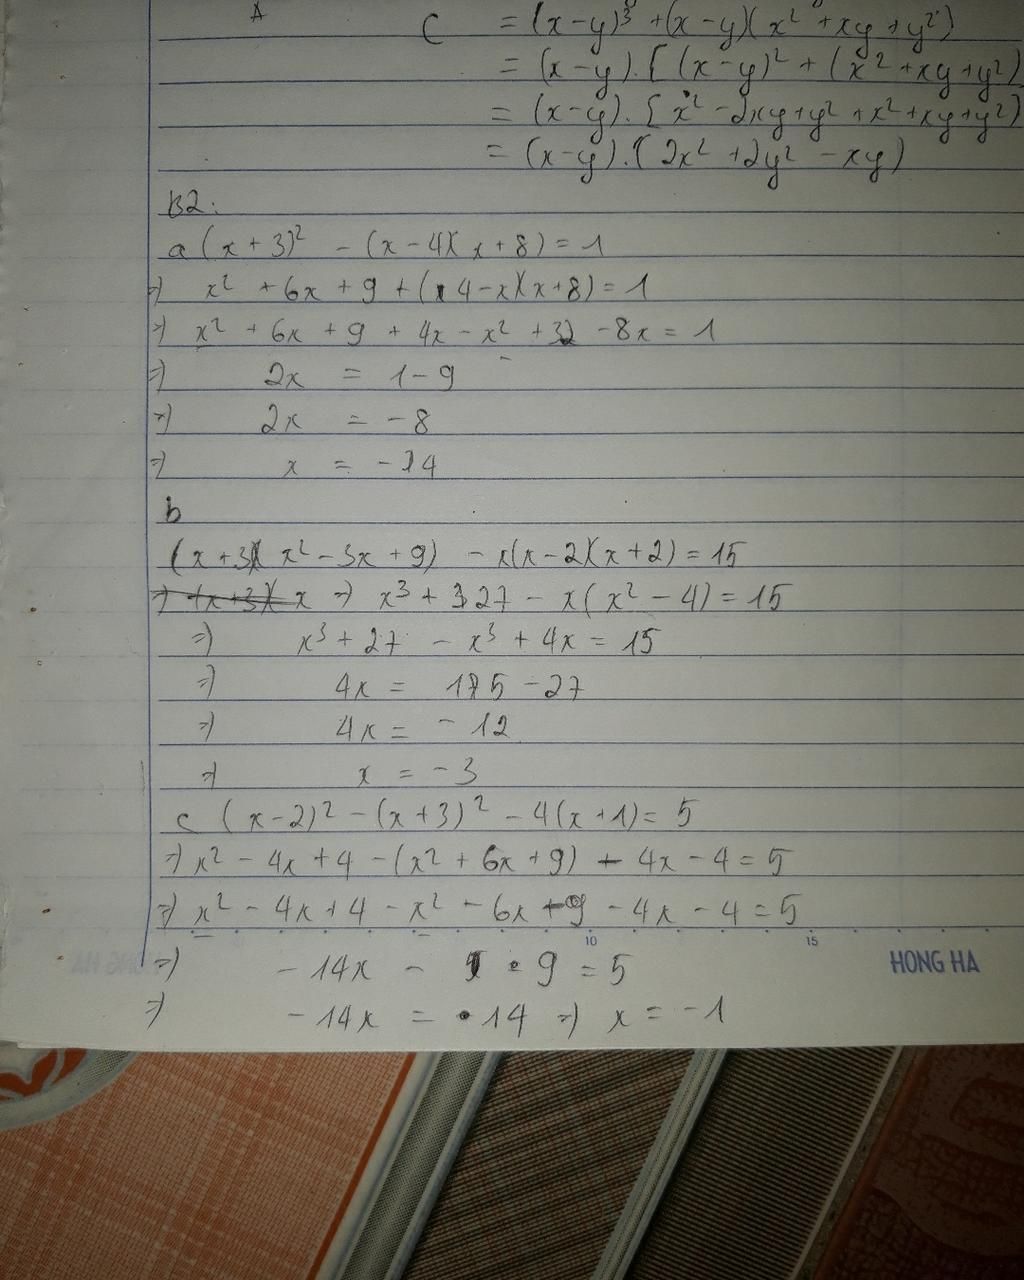 A
C = (x-y)³ + (x-y)(x² + xy + y²)
= (x-y).[(x-y)² + (x² + xy + y²)
= (x-y).[x² - 2xy + y² + x² + xy + y²)
= (x-y).(2x² + 2y² - xy)
B2:
a (x + 3)² - (x - 4)(x + 8) = 1
=) x² + 6x + 9 + (4 - x)(x + 8) = 1
=) x² + 6x + 9 + 4x - x² + 32 - 8x = 1
=) 2x = 1 - 9
=) 2x = -8
=) x = -4
b
(x + 3)(x² - 3x + 9) - x(x - 2)(x + 2) = 15
=) x³ + 27 - x(x² - 4) = 15
=) x³ + 27 - x³ + 4x = 15
=) 4x = 15 - 27
=) 4x = -12
=) x = -3
c (x - 2)² - (x + 3)² - 4(x + 1) = 5
=) x² - 4x + 4 - (x² + 6x + 9) - 4x - 4 = 5
=) x² - 4x + 4 - x² - 6x - 9 - 4x - 4 = 5
10 15
HONG HA
=) -14x - 9 = 5
=) -14x = 14 =) x = -1